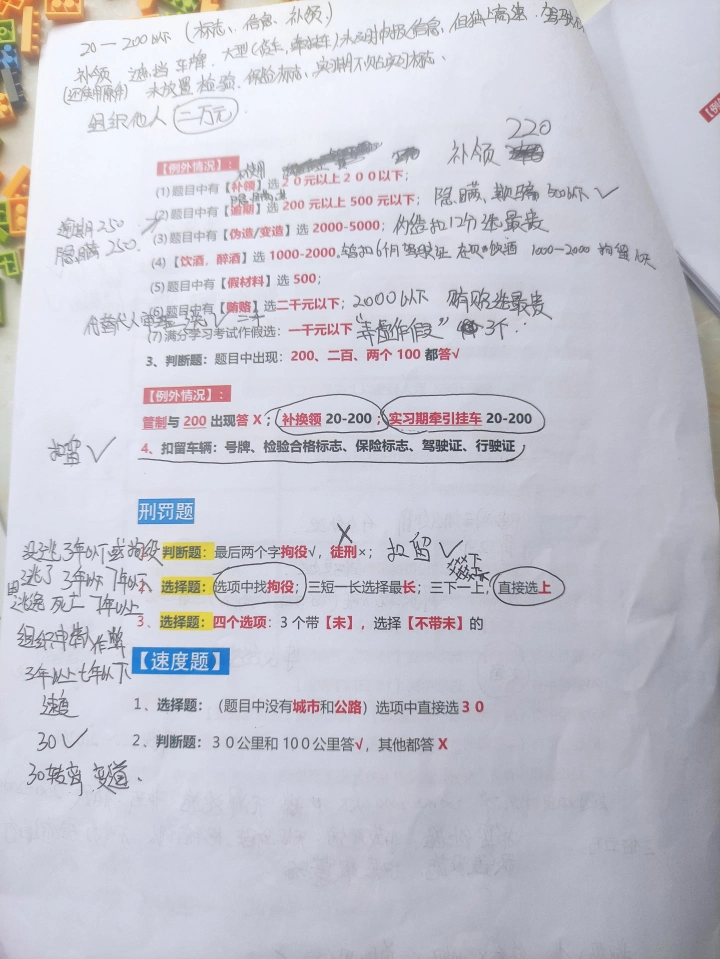 20—200以下（标志、信息、补领、）
补领 遮挡 车牌. 大型(货车、牵引车)未及时申报信息、但独上高速、驾驶
(还候用解释) 未放置检验、保险标志、实习期不贴实习标志、
组织他人 二万元
220
【例外情况】:
补领
(1) 题目中有【补领】选 20元以上200以下;
隐瞒
(2) 题目中有【逾期】选 200 元以上 500 元以下; 隐瞒、欺骗 500以下 ✓
逾期250
隐瞒250.
(3) 题目中有【伪造/变造】选 2000-5000; 伪造扣12分选最贵
(4) 【饮酒，醉酒】选 1000-2000. 暂扣6个月驾驶证 在、饮酒 1000—2000 拘留10天
(5) 题目中有【假材料】选 500;
(6) 题目中有【贿赂】选二千元以下; 2000以下 贿赂选最贵
(7) 满分学习考试作假选: 一千元以下 “弄虚作假” 3个
3、判断题: 题目中出现: 200、二百、两个 100 都答√
【例外情况】:
管制与 200 出现答 X; 补换领 20-200; 实习期牵引挂车 20-200
扣留 ✓
4、扣留车辆: 号牌、检验合格标志、保险标志、驾驶证、行驶证
刑罚题
没逃3年以下或拘役
判断题: 最后两个字拘役√, 徒刑×; 扣留 ✓
X
逃了 3年以下7年以下
2、选择题: 选项中找拘役; 三短一长选择最长; 三下一上, 直接选上
因逃逸 死亡 7年以上
3、选择题: 四个选项: 3 个带【未】, 选择【不带未】的
组织申请人作弊
3年以上七年以下
【速度题】
速度
1、选择题: （题目中没有城市和公路）选项中直接选 30
30 ✓
2、判断题: 30公里和 100公里答√, 其他都答 X
30转弯 变道、